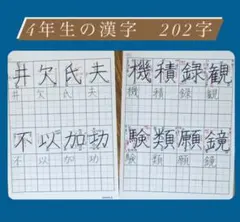 4年生の漢字 202字
井欠氏夫
井欠氏夫
不以加功
不以加功
機積録観
機積録観
験類願鏡
験類願鏡